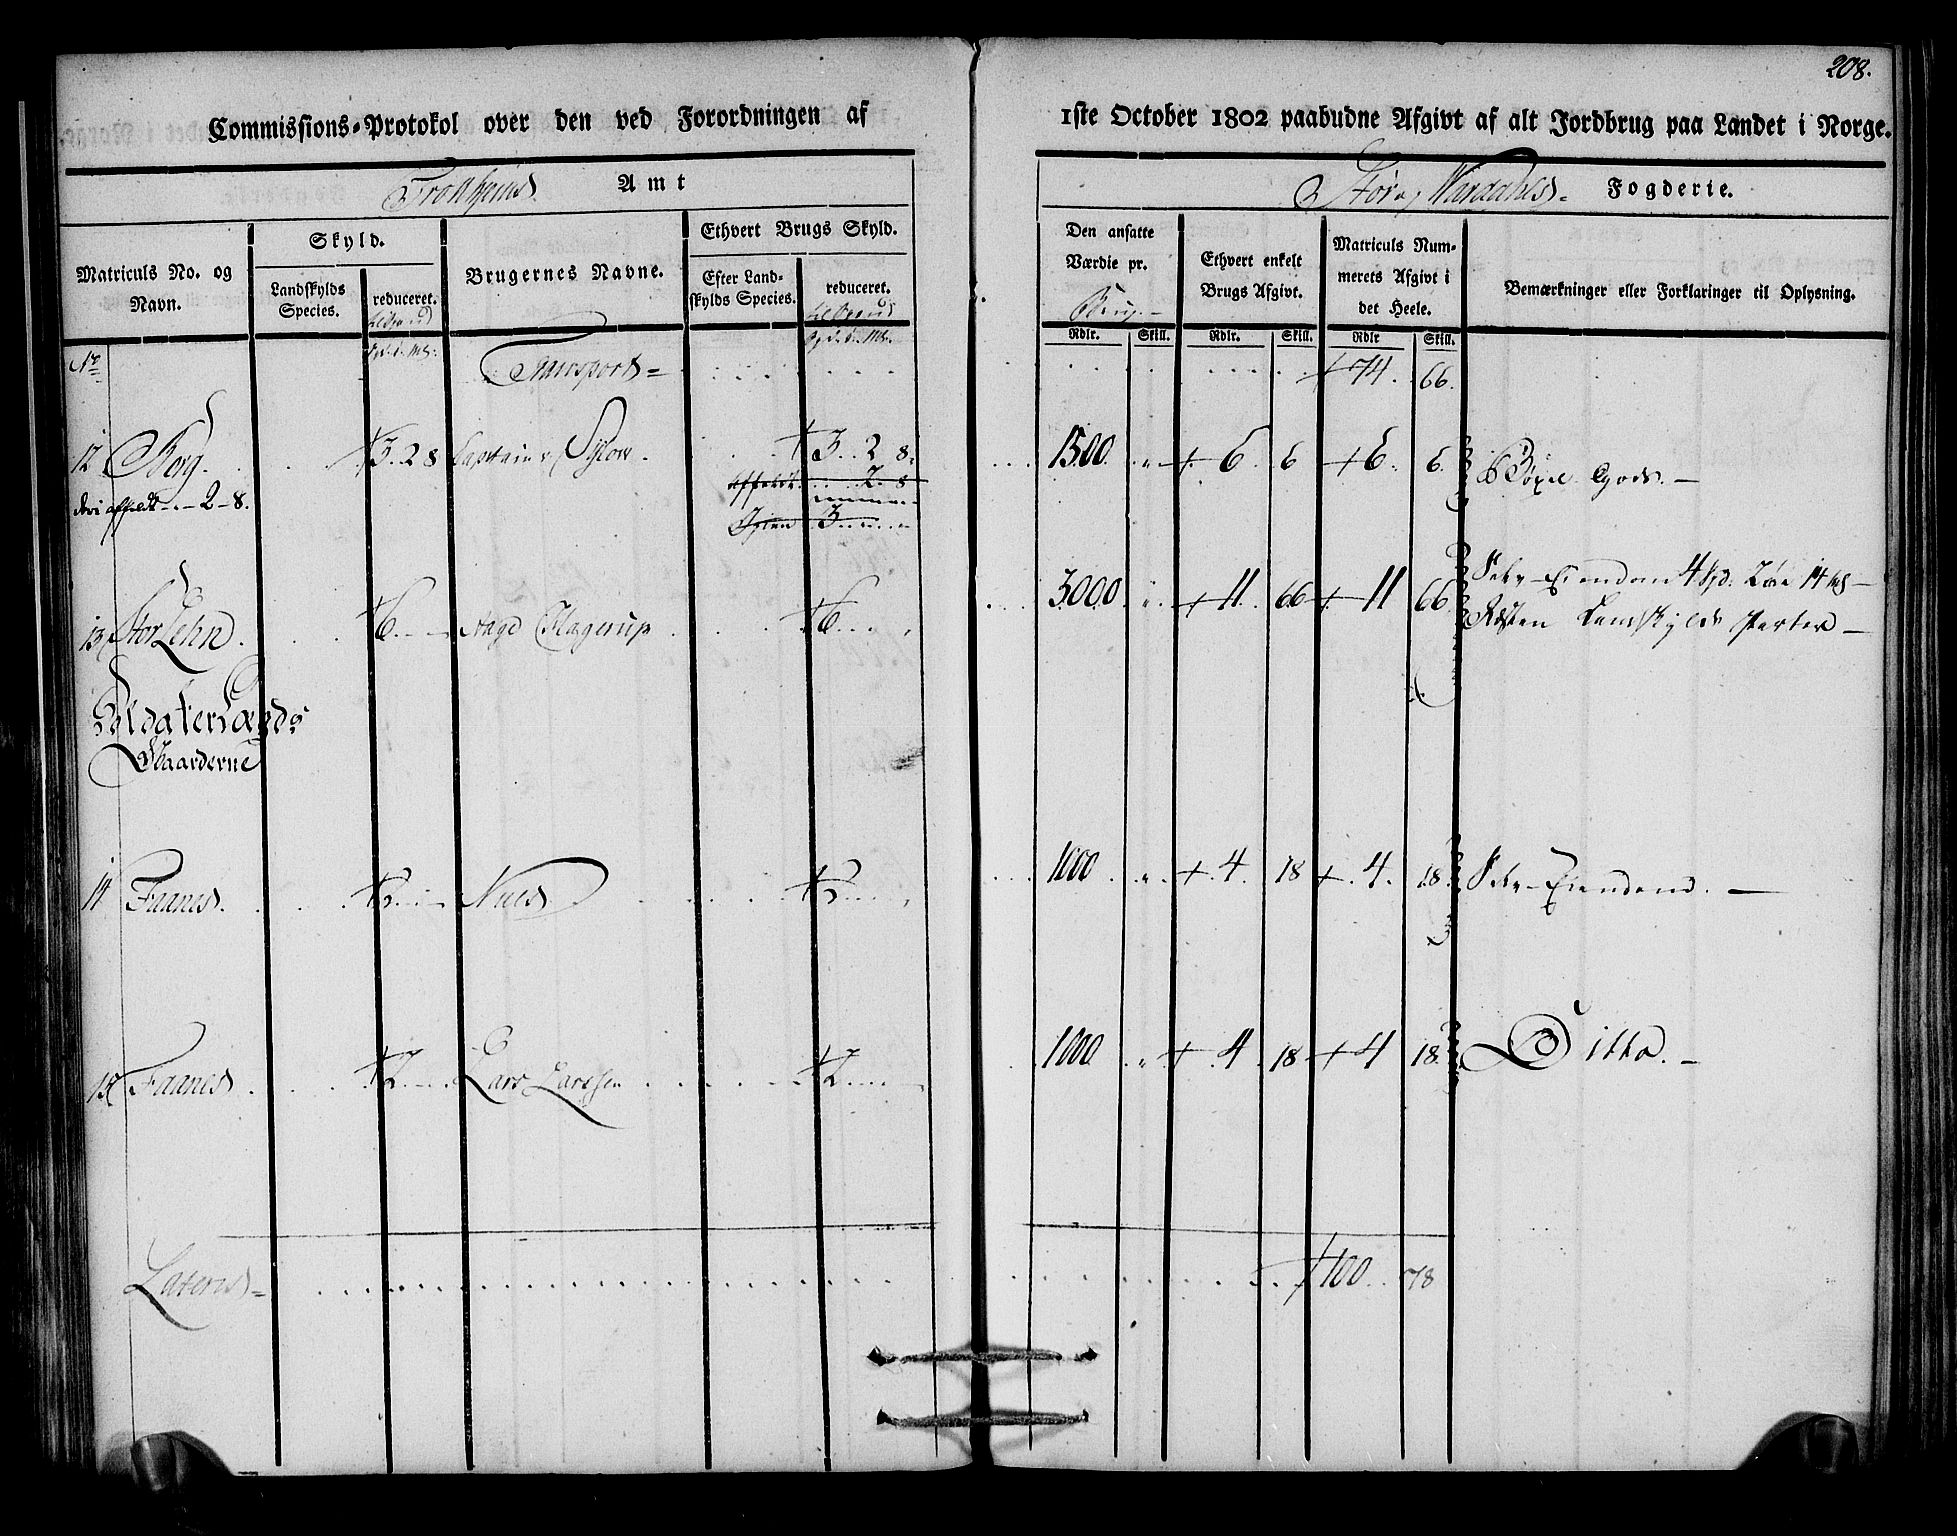 208.
Commissions-Protokol over den ved Forordningen af 1ste October 1802 paabudne Afgivt af alt Jordbrug paa Landet i Norge.
Tronhjems Amt
Stør og Værdahls Fogderie.
Matriculs No. og Navn.
Skyld.
Landskylds Species.
reduceret.
Brugernes Navne.
Ethvert Brugs Skyld.
Efter Landskylds Species.
reduceret.
Den ansatte Værdie pr. Brug.
Ethvert enkelt Brugs Afgivt.
Matriculs Nummerets Afgivt i det Heele.
Bemærkninger eller Forklaringer til Oplysning.
Rdlr. Skill. Rdlr. Skill. Rdlr Skill.
No Transport = 74. 66.
12 Borg. 3. 2 8 Captain 3. 2 8. 1500 6. 6 6. 6. Bøxel Gods. —
2 - 8. 2. 8
3
13 Stor Lehn. 6 Aage Hagerup 6 3000. 11. 66 11 66 Selv-Eiendom 4 Spd: 2 Øre 14 —
Resten Landskylds Parter —
Soldater Lægds
Gaarderne
14 Faanes. 2 Niels 2 1000. 4. 18 4. 18. Selv-Eiendom. —
15 Faanes 2 Lars Larssen 2 1000 4 18 4 18. Ditto. —
Lateris = 100 78